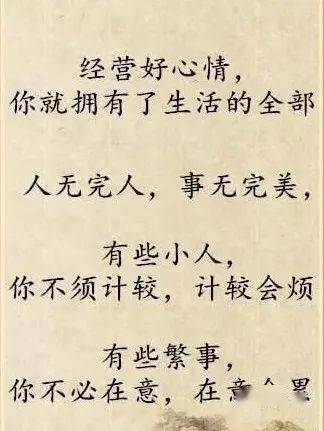 经营好心情，
你就拥有了生活的全部
人无完人，事无完美，
有些小人，
你不须计较，计较会烦
有些繁事，
你不必在意，在意会累